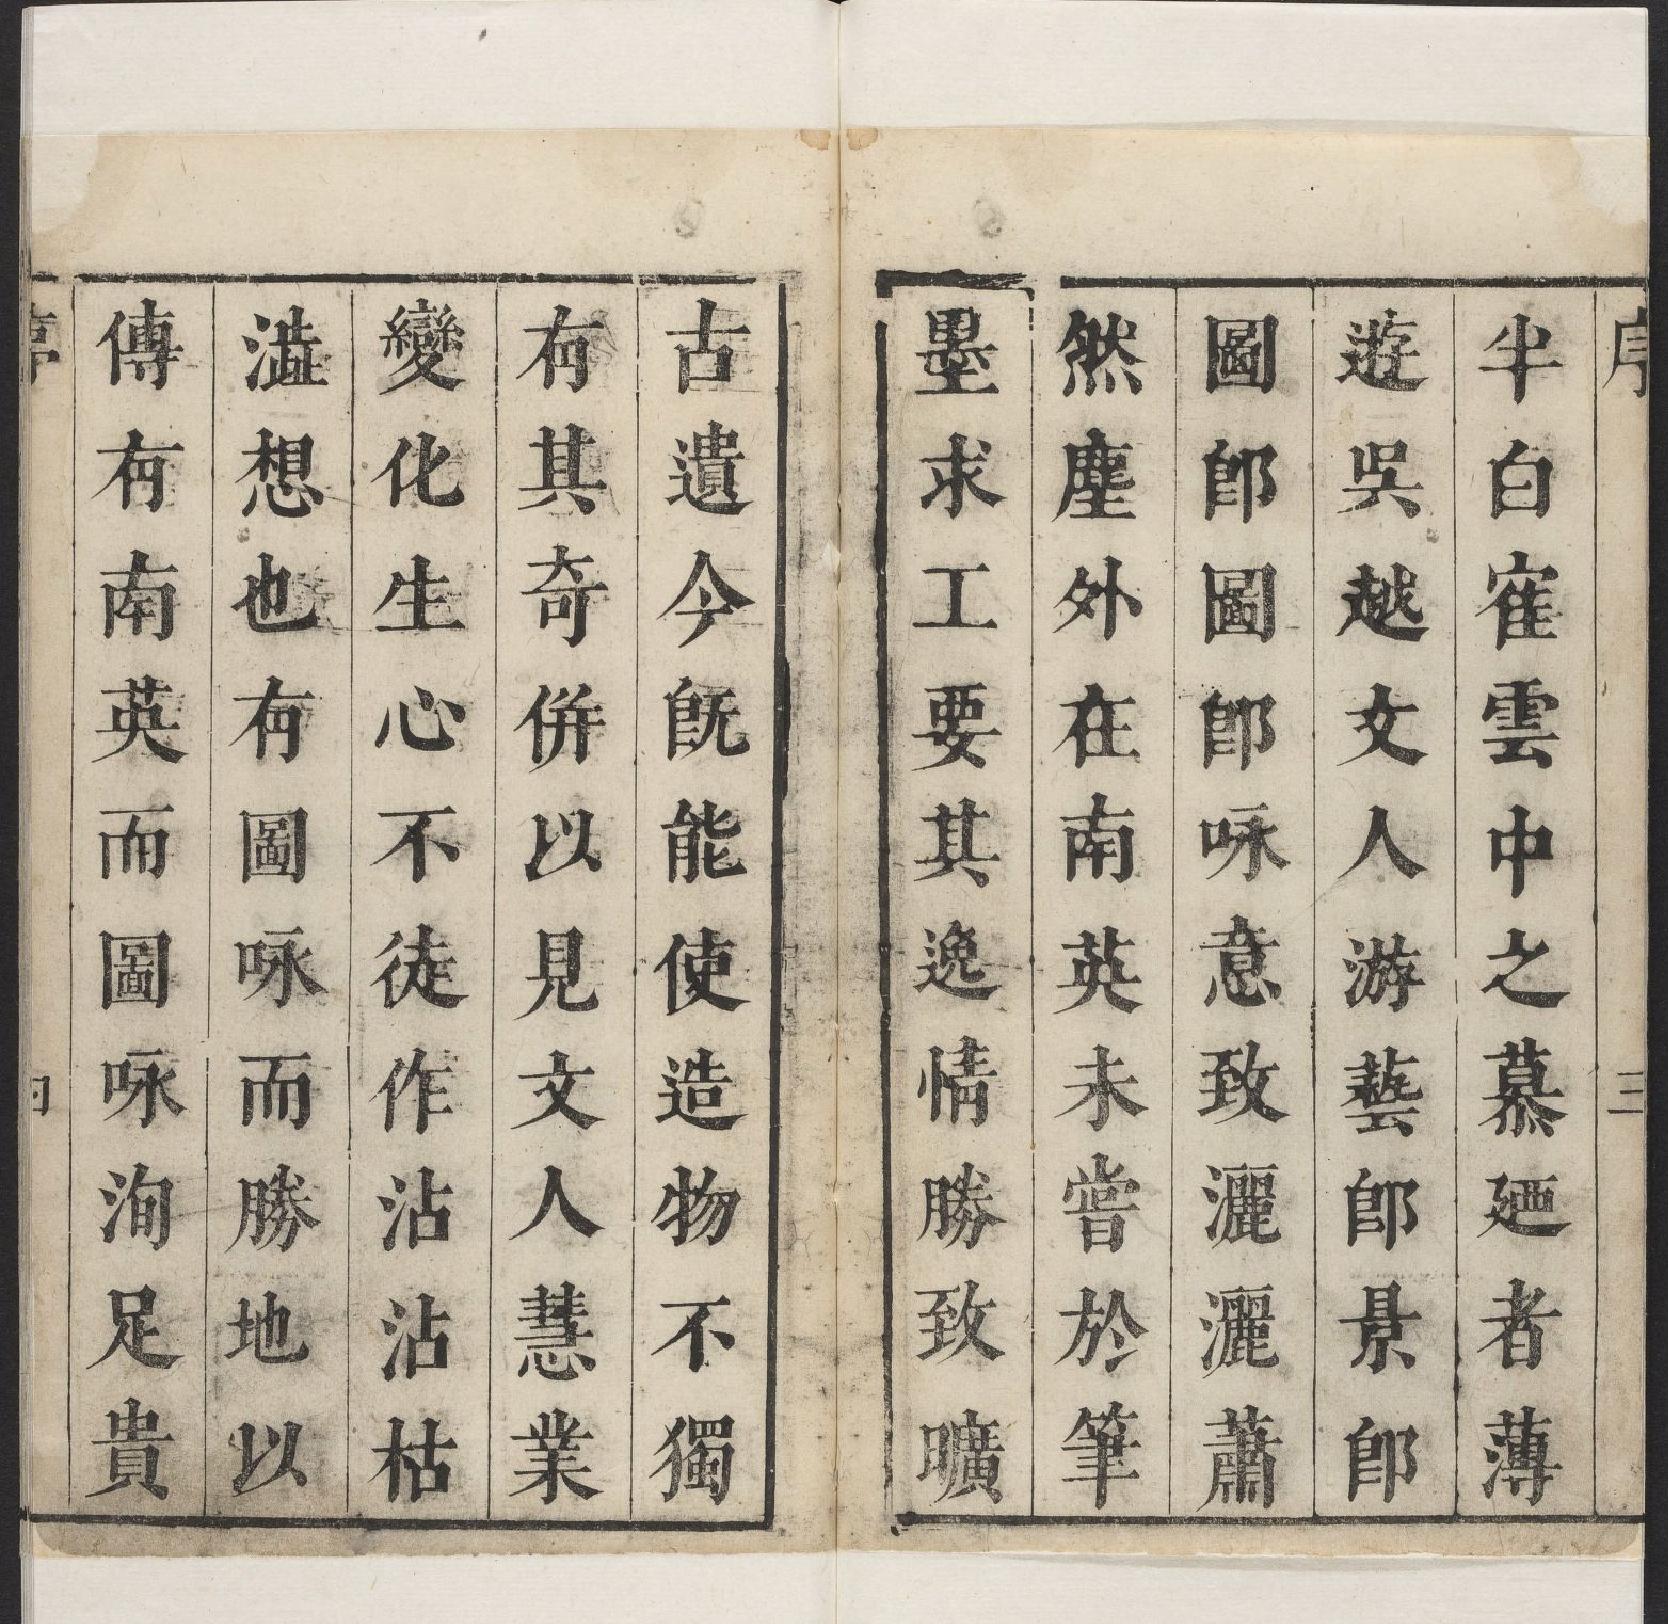 序
三
半白寉雲中之慕廼者薄
遊吳越文人游藝卽景卽
圖卽圖卽咏意致灑灑蕭
然塵外在南英未嘗於筆
墨求工要其逸情勝致曠
古遺今旣能使造物不獨
有其奇併以見文人慧業
變化生心不徒作沾沾枯
澁想也有圖咏而勝地以
傳有南英而圖咏洵足貴